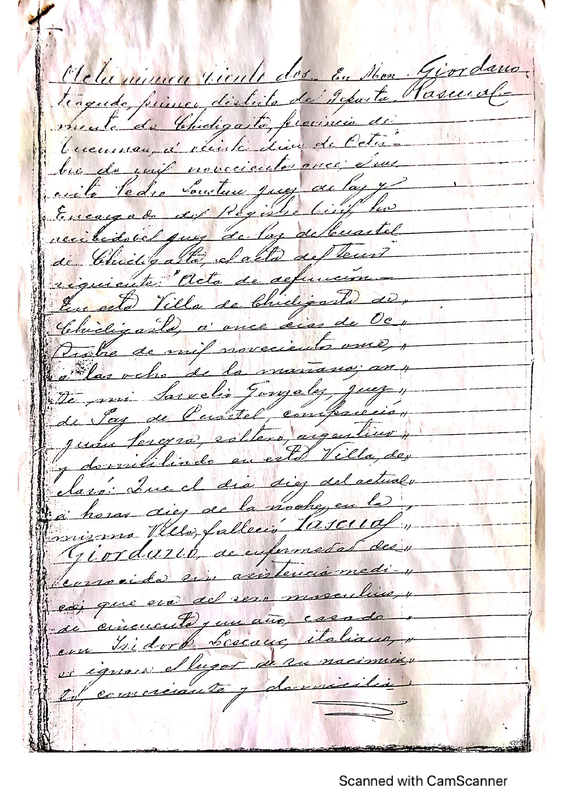 Acta número ciento dos. En Mon- Giordano
teagudo, primer distrito del Departa- Pascual
mento de Chicligasta, provincia de
Tucuman, á veinte dias de Octu-
bre de mil novecientos once,
Pedro juez de Paz y
Encargado del Registro Civil, he
recibido del juez de Paz de Cuartel
de Chicligasta, el acta del tenor
siguiente: "Acta de defunción
En esta Villa de Chicligasta de
Chicligasta, á once dias de Oc "
tubre de mil novecientos once, "
á las ocho de la mañana; an "
te mi Gonzalez, juez "
de Paz de Cuartel, compareció "
Juan Pereyra, soltero, argentino "
y domiciliado en esta Villa, de "
claró: Que el dia diez del actual "
á horas diez de la noche, en la "
misma Villa, falleció Pascual
Giordano, de enfermedad des "
conocida sin asistencia medi "
ca; que era del sexo masculino, "
de cincuenta y un año, casado "
con Isidora Lescano, italiano, "
se ignora el lugar de su nacimien "
to, comerciante y domicilia
Scanned with CamScanner